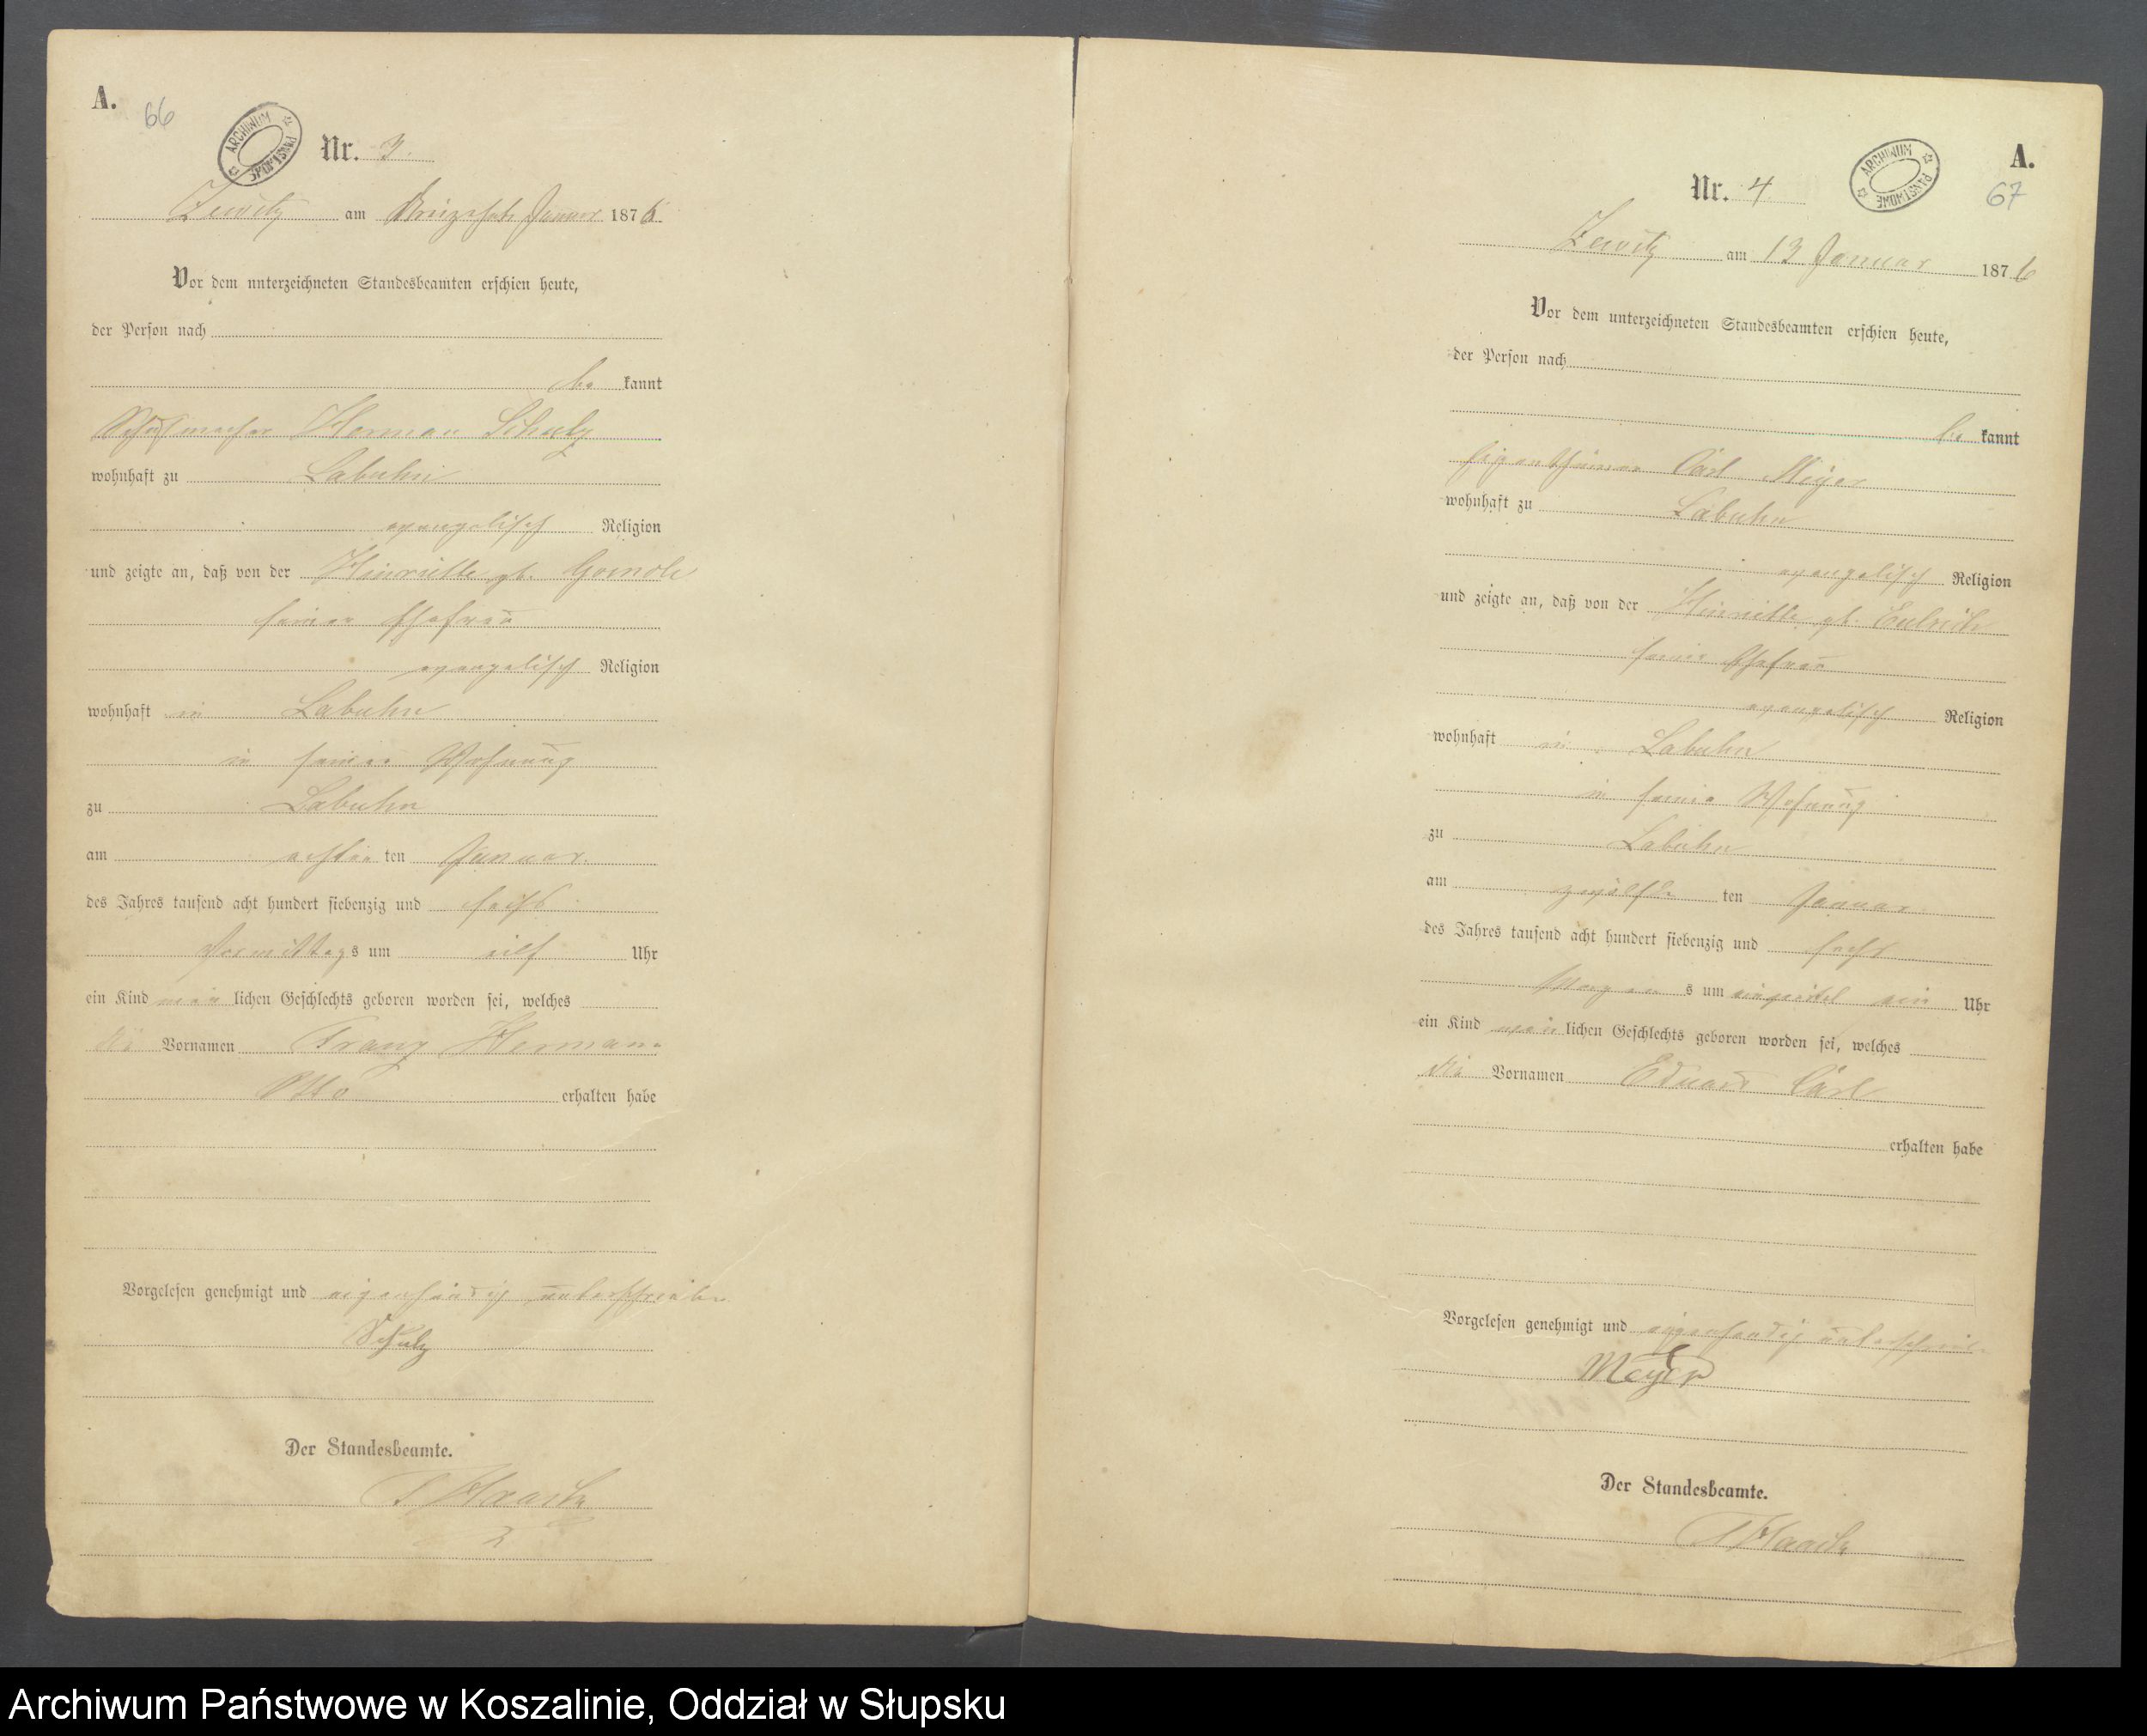 A.
66
ARCHIWUM PAŃSTWOWE
Nr. 3.
Zewitz am Dreizehnte Januar 1876
Vor dem unterzeichneten Standesbeamten erschien heute,
der Person nach
be kannt
Schuhmacher Herman Schulz
wohnhaft zu Labuhn
evangelisch Religion
und zeigte an, daß von der Heinriette gb.
seiner Ehefrau
evangelisch Religion
wohnhaft in Labuhn
in seiner Wohnung
zu Labuhn
am achten ten Januar.
des Jahres tausend acht hundert siebenzig und sechs
Vormittags um eilf Uhr
ein Kind män lichen Geschlechts geboren worden sei, welches
die Vornamen Franz Hermann
Otto erhalten habe
Vorgelesen genehmigt und eigenhändig unterschrieben
Schulz
Der Standesbeamte.
A.
67
ARCHIWUM PAŃSTWOWE
Nr. 4
Zewitz am 13 Januar 1876
Vor dem unterzeichneten Standesbeamten erschien heute,
der Person nach
be kannt
Eigenthümer Carl Meyer
wohnhaft zu Labuhn
evangelisch Religion
und zeigte an, daß von der gb.
seine Ehefrau
evangelisch Religion
wohnhaft in Labuhn
in seine Wohnung
zu Labuhn
am zwölfte ten Januar
des Jahres tausend acht hundert siebenzig und sechs
Morgens um ein Uhr
ein Kind män lichen Geschlechts geboren worden sei, welches
die Vornamen Eduard Carl
erhalten habe
Vorgelesen genehmigt und eigenhändig unterschrieben
Meyer
Der Standesbeamte.
Archiwum Państwowe w Koszalinie, Oddział w Słupsku